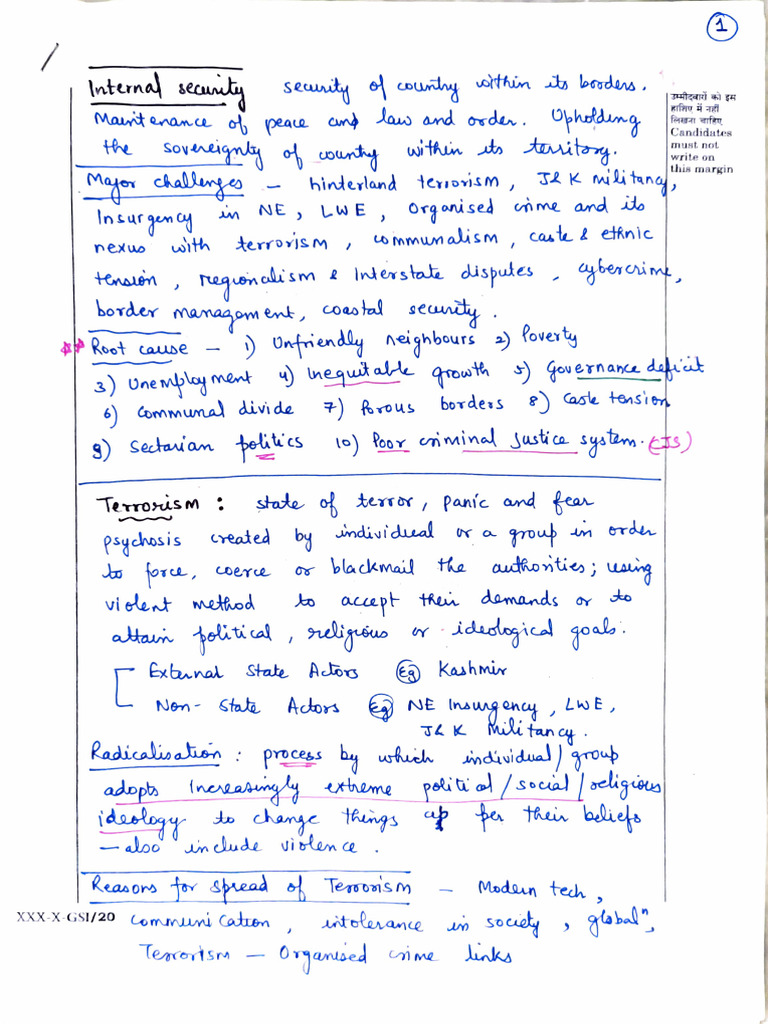 1
Internal security security of country within its borders.
Maintenance of peace and law and order. Upholding
the sovereignty of country within its territory.
उम्मीदवारों को इस
हाशिए में नहीं
लिखना चाहिए
Candidates
must not
write on
this margin
Major challenges – hinterland terrorism, J&K militancy,
Insurgency in NE, LWE, Organised crime and its
nexus with terrorism, communalism, caste & ethnic
tension, regionalism & Interstate disputes, cybercrime,
border management, coastal security.
Root cause – 1) Unfriendly neighbours 2) Poverty
3) Unemployment 4) Inequitable growth 5) Governance deficit
6) Communal divide 7) Porous borders 8) Caste tension
9) Sectarian politics 10) Poor criminal Justice system. (CJS)
Terrorism : state of terror, panic and fear
psychosis created by individual or a group in order
to force, coerce or blackmail the authorities; using
violent method to accept their demands or to
attain political, religious or ideological goals.
External State Actors Eg Kashmir
Non-State Actors Eg NE Insurgency, LWE,
J&K Militancy.
Radicalisation : process by which individual/group
adopts increasingly extreme political/social/religious
ideology to change things as per their beliefs
– also include violence.
Reasons for spread of Terrorism – Modern tech,
XXX-X-GSI/20 communication, intolerance in society, globalⁿ,
Terrorism – Organised crime links